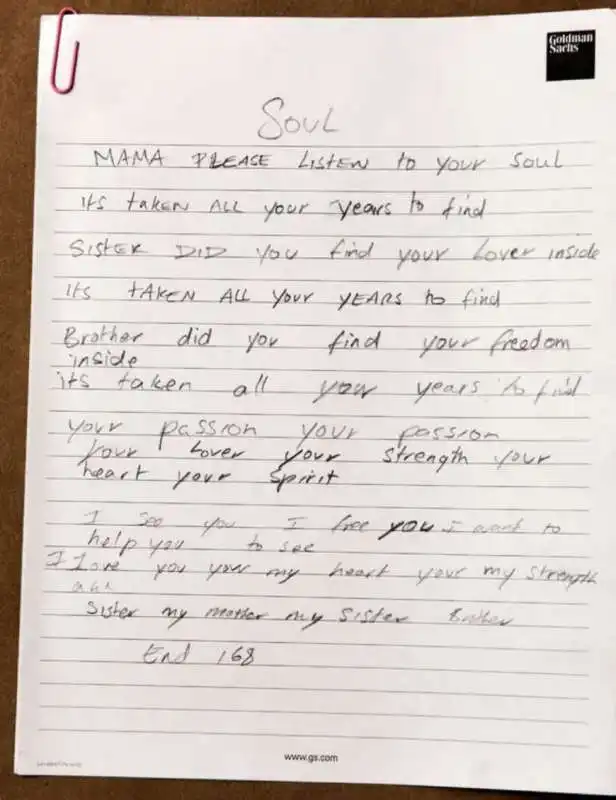 Goldman
Sachs
SOUL
MAMA PLEASE LISTEN to your SOUL
its taken ALL your years to find
SISTER DID YOU find your Lover inside
its tAKEN ALL your yEARS to find
Brother did you find your freedom
inside
its taken all your years to find
your passion your passion
your Lover your strength your
heart your spirit
I see you I free you i want to
help you to see
I Love you your my heart your my strength
Sister my mother my sister Brother
End 168
www.gs.com